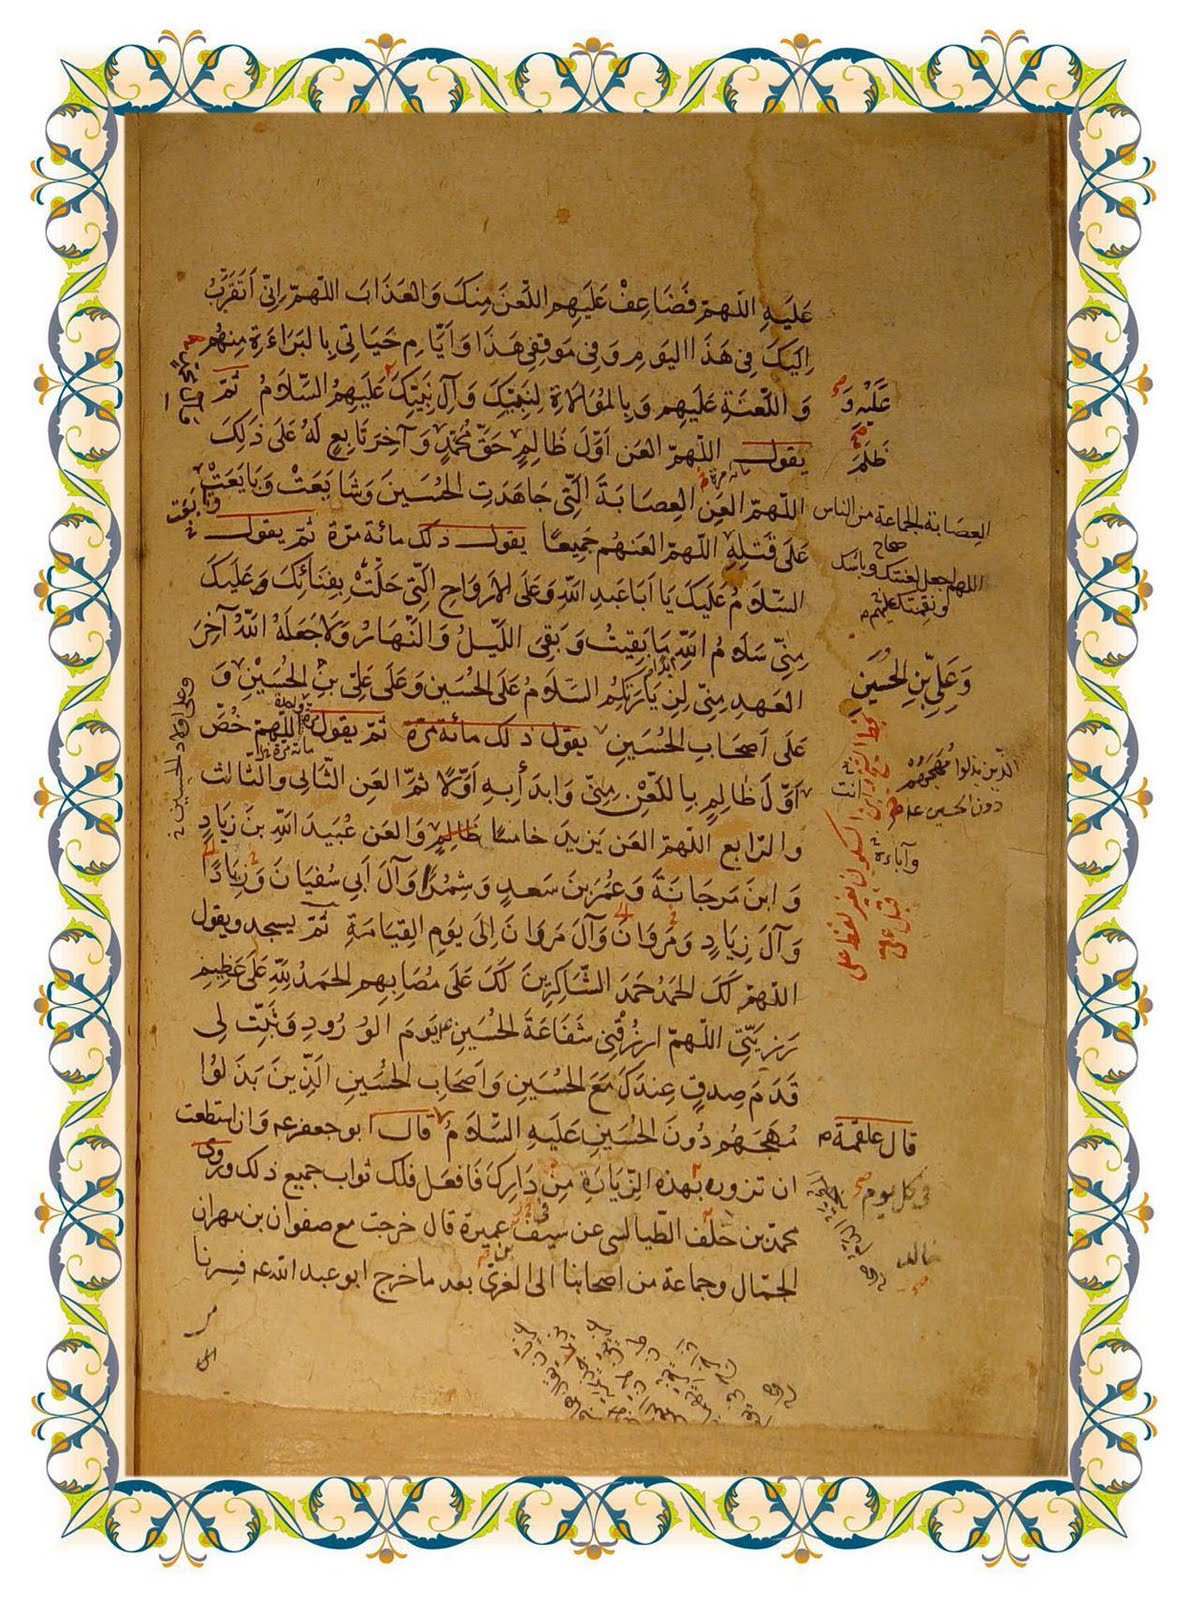 عَلَيهِ اللّهمّ فَضَاعِفْ عَلَيهِم اللّعنَ مِنكَ وَالعَذَابَ اللّهمّ اِنّى اَتَقَرَّبُ
اِلَيكَ فِى هَذَا اليَومِ وَفِى مَوقِفِى هَذَا وَاَيّامِ حَيَاتِى بِالبَرَاءَةِ مِنهُم
وَاللّعنَةِ عَلَيهِم وَبِالمُوَالَاةِ لِنَبِيّكَ وَآلِ نَبِيّكَ عَلَيهِمُ السَّلَامُ ثمّ
يقول اللّهمّ العَن اَوّلَ ظَالِمٍ حَقّ مُحَمّدٍ وَآخِرَ تَابِعٍ لَهُ عَلَى ذَلِكَ
اللّهمّ العَنِ العِصَابَةَ الَّتِى جَاهَدَتِ الحُسَينَ وَشَايَعَتْ وَبَايَعَتْ
عَلَى قَتلِهِ اللّهمّ العَنهُم جَمِيعًا يقول ذلك مائة مرّة ثمّ يقول
السّلَامُ عَلَيكَ يَا اَبَا عَبدِ اللّهِ وَعَلَى الاَروَاحِ الَّتِى حَلَّتْ بِفِنَائِكَ وَعَلَيكَ
مِنّى سَلَامُ اللّهِ مَا بَقِيتُ وَبَقِىَ اللّيلُ وَالنّهَارُ وَلَا جَعَلَهُ اللّهُ آخِرَ
العَهدِ مِنّى لِزِيَارَتِكُم السّلَامُ عَلَى الحُسَينِ وَعَلَى عَلِىّ بنِ الحُسَيْنِ وَ
عَلَى اَصحَابِ الحُسَينِ يقول ذلك مائة مرّة ثمّ يقول اللّهمّ خُصّ
اَوّلَ ظَالِمٍ بِاللّعْنِ مِنّى وَابدَأ بِهِ اَوّلًا ثمّ العَنِ الثّانِى وَالثّالِث
وَالرّابِع اللّهمّ العَن يَزِيدَ خامسًا ظالِمٍ وَالعَن عُبَيدَ اللّهِ بنَ زِيَادٍ
وَابنَ مَرجَانَةَ وَعُمَرَ بنَ سَعدٍ وَشِمْرًا وَآلَ اَبِى سُفيَانَ وَزِيَادًا
وَآلَ زِيَادٍ وَمَروَانَ وَآلَ مَروَانَ اِلَى يَومِ القِيَامَةِ ثمّ يسجد ويقول
اللّهمّ لَكَ الحَمدُ حَمدَ الشّاكِرِينَ لَكَ عَلَى مُصَابِهِم الحَمدُ لِلّهِ عَلَى عَظِيمِ
رَزِيّتِى اللّهمّ ارزُقْنِى شَفَاعَةَ الحُسَينِ يَومَ الوُرُودِ وَثَبّت لِى
قَدَمَ صِدقٍ عِندَكَ مَعَ الحُسَينِ وَاَصحَابِ الحُسَينِ الّذِينَ بَذَلُوا
مُهَجَهُم دُونَ الحُسَينِ عَلَيهِ السّلَامُ قال ابو جعفر عم وان استطعت
ان تزوره بهذه الزيارة مِنْ دَارِكَ فَافعَل فلك ثواب جميع ذلك وروى
محمد بن خلف الطيالسى عن سيف عميرة قال خرجت مع صفوان بن مهران
الجمّال وجماعة من اصحابنا الى الغرىّ بعد ما خرج ابو عبد الله عم فسرنا
عَلَيْهِ وَ
ظَلَمَ
العِصَابة الجماعة من الناس
صحاح
اللهم اجعل لعنتك وباسك
ونقمتك عليهم
وَعَلِىّ بنِ الحُسَينِ
الّذين بذلوا مُهَجَهُمْ
دون الحسين عم
انت
وآباءه
قال علقمة
فى كل يوم
خالد
وعلى اولاد الحسين
مائة مرة